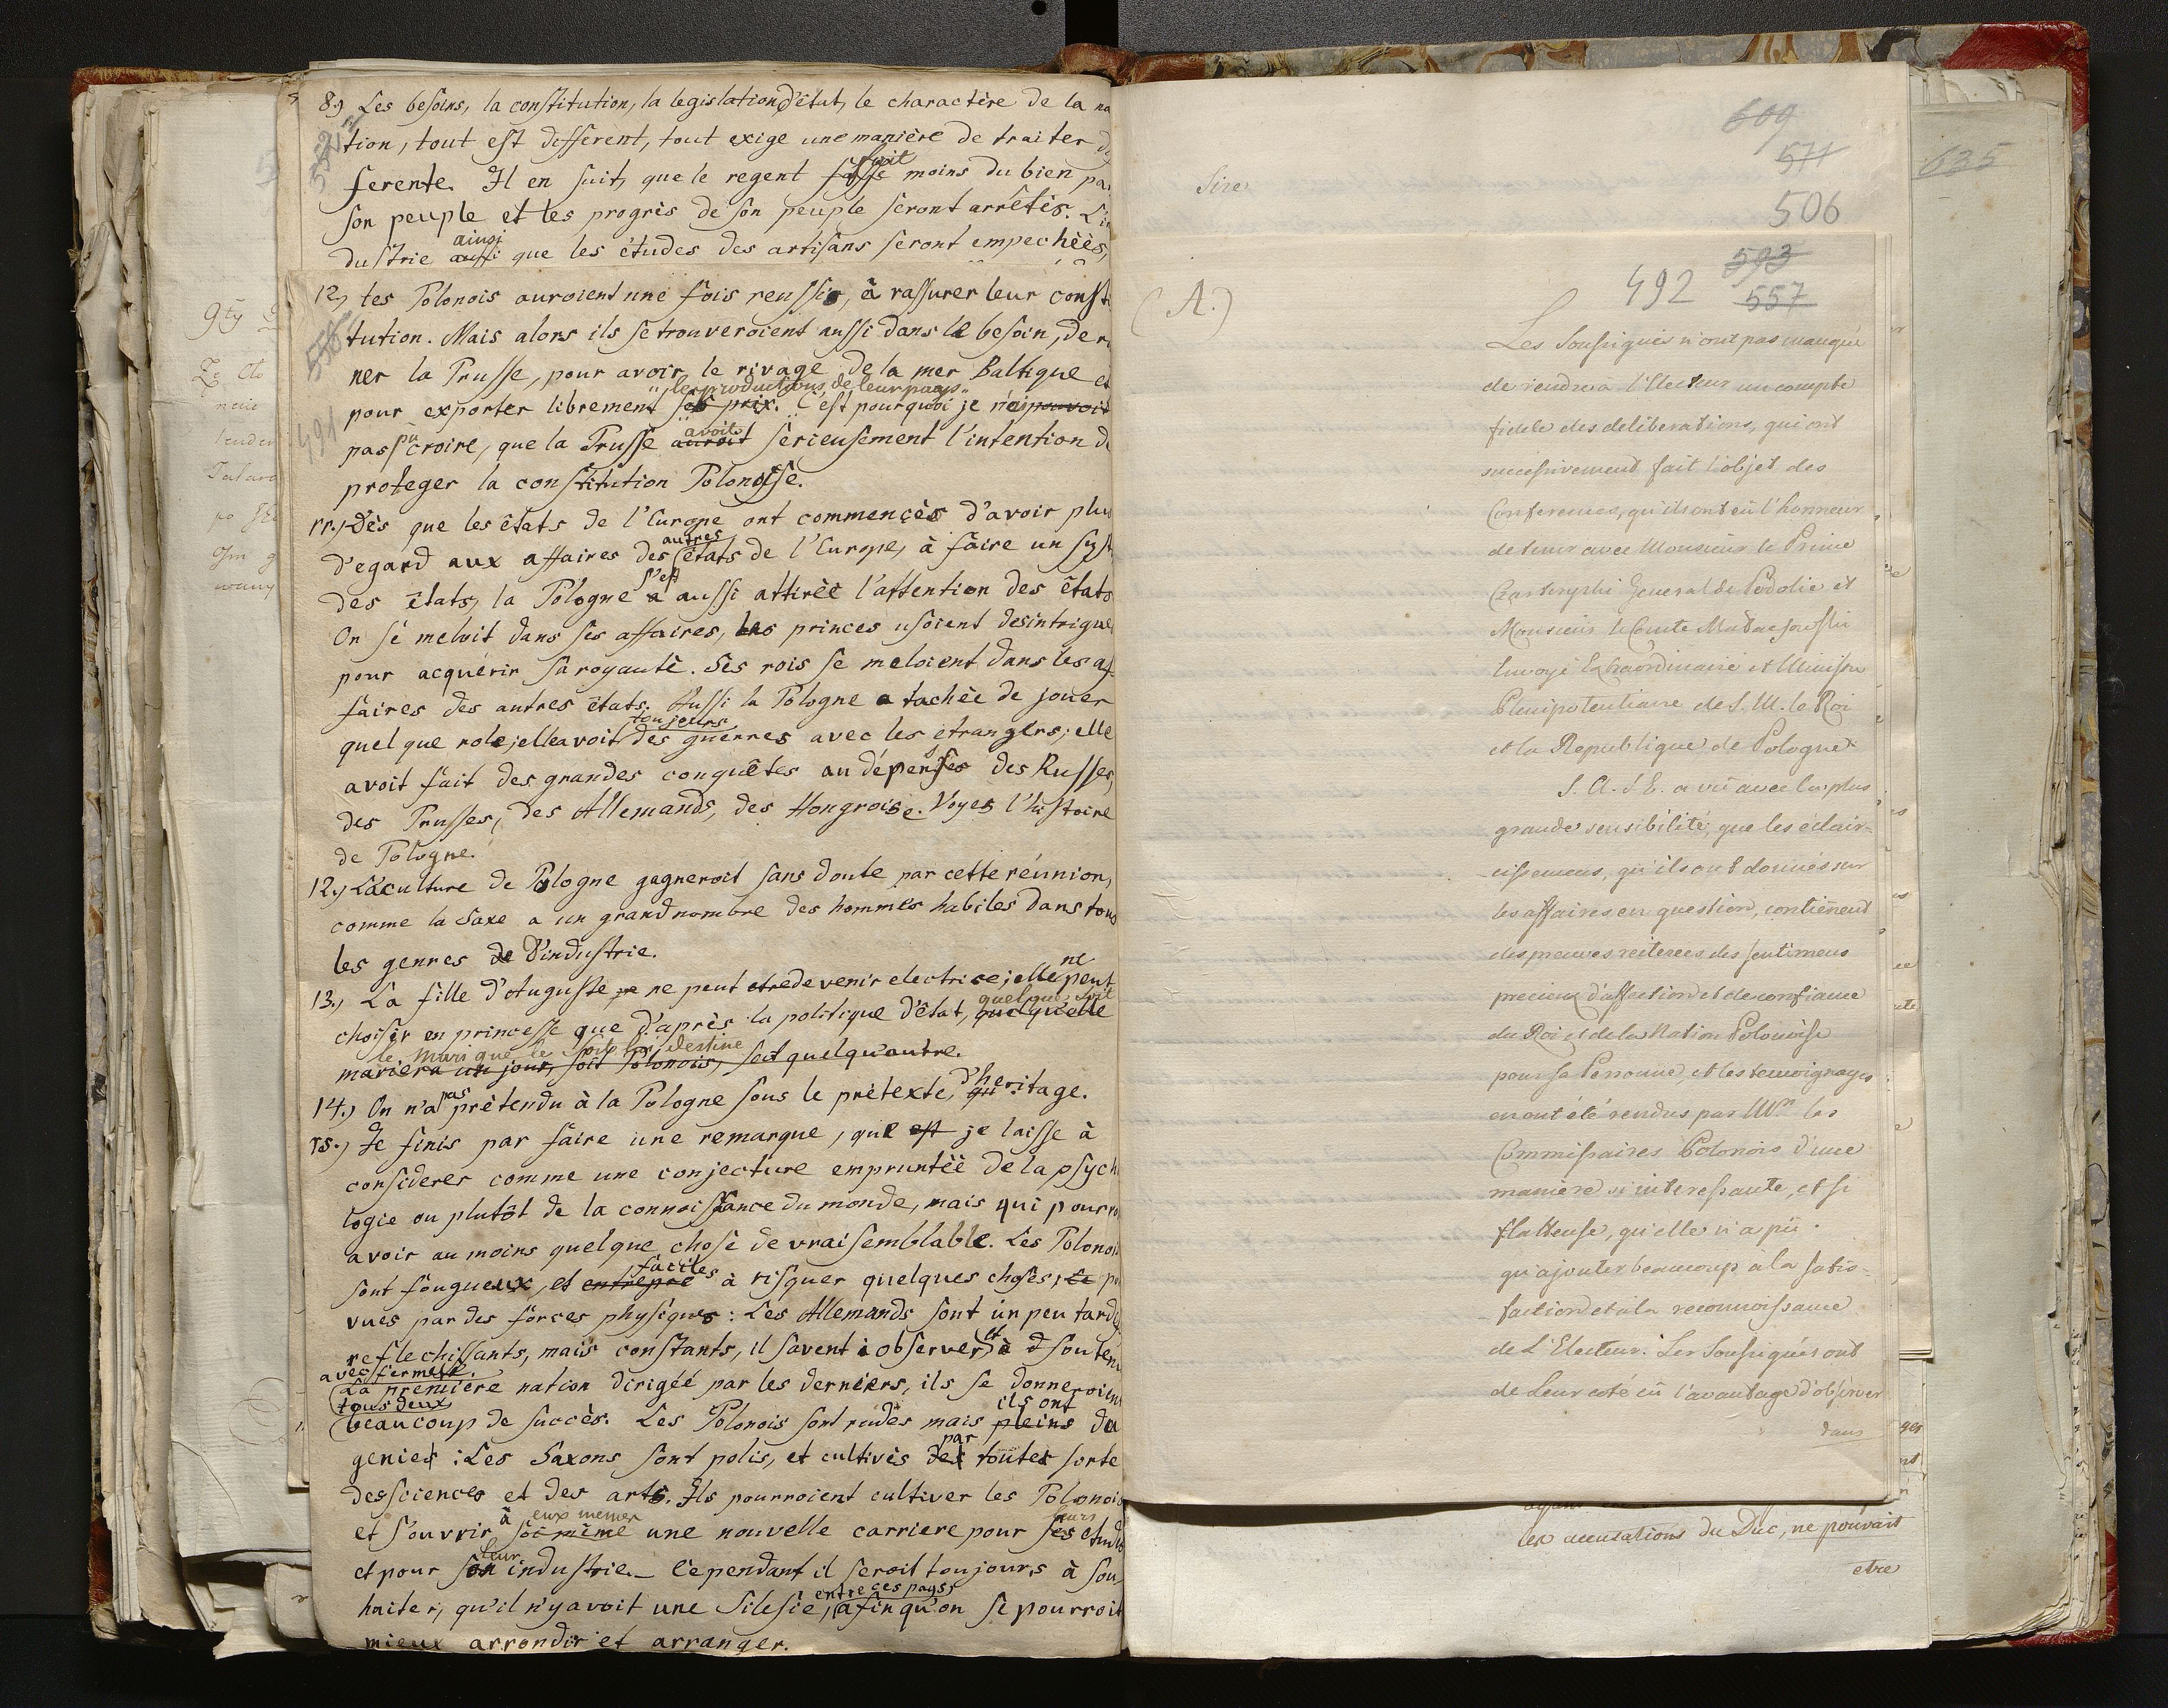 8.) Les besoins, la constitution, la legislation d'état, le charactère de la na
tion, tout est different, tout exige une manière de traiter
ferente. Il en suit, que le regent fait moins du bien pa
son peuple et les progrès de son peuple seront arrêtés. L'in
dustrie ainsi que les études des artisans seront empechèés,
12.) tes Polonois auroient une fois reussis, à rassurer leur consti
tution. Mais alors ils se trouveroient aussi dans le besoin, de
ner la Prusse, pour avoir le rivage de la mer Baltique et
pour exporter librement les productions de leur pays. C'est pourquoi je n'ai pouvoit
pas pû croire, que la Prusse avoit serieusement l'intention de
491
proteger la constitution Polonoise.
11.) Dès que les êtats de l'Europe ont commencès d'avoir plus
d'egard aux affaires des autres êtats de l'Europe, à faire un syst
des êtats, la Pologne s'est aussi attirèe l'attention des êtats
On sé meloit dans ses affaires, les princes usoient des intrigues
pour acquérir sa royautè. Ses rois se meloient dans les af-
faires des autres êtats. Aussi la Pologne a tachèe de jouer
quelque role; elle avoit toujours des guerres avec les etrangers; elle
avoit fait des grandes conquêtes au dépenses des Russes,
des Prusses, des Allemands, des Hongrois. Voyes l'histoire
de Pologne.
12.) La culture de Pologne gagneroit sans doute par cette réunion,
comme la Saxe a un grand nombre des hommes habiles dans tous
les genres de d'industrie.
13.) La fille d'Auguste ne peut devenir electrice; elle ne peut
choisir en princesse que d'après la politique d'êtat, quelque soit quelqu'elle
le mari que le sort lui destine
mariera un jour, soit Polonois, soit quelqu'autre.
14.) On n'a pas prètendu à la Pologne sous le prètexte d'heritage.
15.) Je finis par faire une remarque, que est je laisse à
consideres comme une conjecture empruntèé de la psycho
logie ou plutôt de la connoissance du monde, mais qui pourroi
avoir au moins quelque chose de vraisemblable. Les Polonois
sont fougueux, et entrepre faciles à risquer quelques choses,
vues par des forces physiques: Les Allemands sont un peu tardifs
reflechissants, mais constants, il savent à observer, et à soutenir
avec fermeté.
La première nation dirigéé par les derniers, ils se donneroient
tous deux
beaucoup de succès. Les Polonois sont rudes mais ils ont pleins du
genies: Les Saxons sont polis, et cultivés par toutes sorte
des sciences et des arts. Ils pourroient cultiver les Polonois
et s'ouvrir à eux memes soi même une nouvelle carriere pour leurs ses etudes
et pour leur son industrie. Cependant il seroit toujours à sou-
haiter, qu'il n'y avoit une Silesie, entre ces pays, afin qu'on se pourroit
mieux arrondir et arranger.
609
571
506
Sire
593
492
557
(A.)
Les Soussignés n'ont pas manqué
de rendre a l'Electeur un compte
fidele des deliberations, qui ont
successivement fait l'objet des
Conferences, qu'ils ont eû l'honneur
de tenir avec Monsieur le Prince
Czartoryski General de Podolie et
Monsieur le Comte Matachowski
Envoyé Extraordinaire et Ministre
Plenipotentiaire de S. M. le Roi
et la Republique de Pologne.
S. A. S. E. a vû avec la plus
grande sensibilité, que les éclair-
cissemens, qu'ils ont donnés sur
les affaires en question, contiennent
des preuves reiterées des sentimens
precieux d'affection et de confiance
du Roi et de la Nation Polonoise
pour sa Personne, et les temoignages
en ont été rendus par Mrs les
Commissaires Polonois d'une
manière si interessante, et si
flatteuse, qu'elle n'a pû
qu'ajouter beaucoup à la satis-
faction et à la reconnoissance
de L'Electeur. Les Soussignés ont
de Leur coté eû l'avantage d'observer
dans
les accusations du Duc, ne pouvait
etre
635